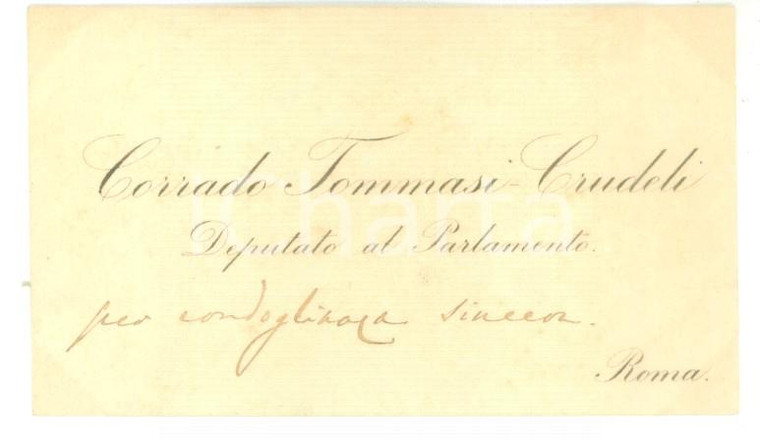 Corrado Tommasi-Crudeli
Deputato al Parlamento.
per condoglianza sincera.
Roma.